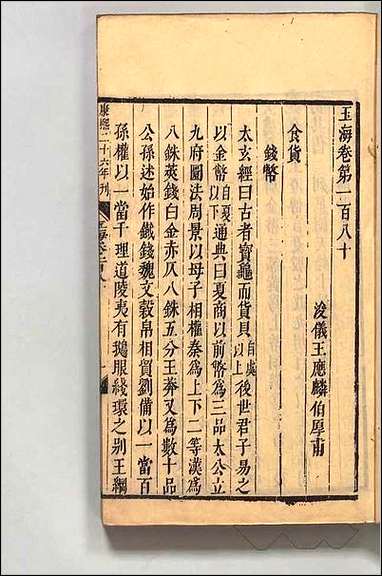 玉海卷第一百八十
浚儀王應麟伯厚甫
食貨
錢幣
太玄經曰古者寶龜而貨貝自虞以上後世君子易之
以金幣自夏以下通典曰夏商以前幣爲三品太公立
九府圜法周景以母子相權秦爲上下二等漢爲
八銖莢錢白金赤仄八銖五分王莽又爲數十品
公孫述始作鐵錢魏文穀帛相貿劉備以一當百
孫權以一當千理道陵夷有鵝眼綖環之别王綱
康熙二十六年刊